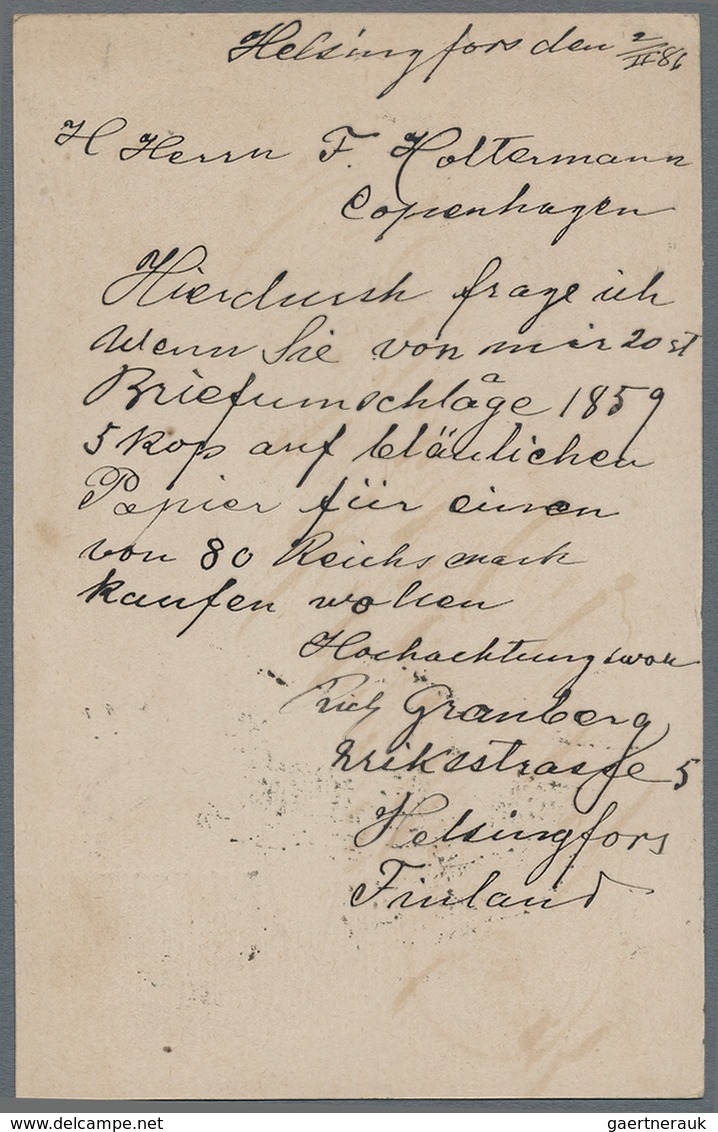 Helsingfors den 2/II 86
H Herrn F. Holtermann
Copenhagen
Hierdurch frage ich
wenn Sie von mir 20 st
Briefumschläge 1859
5 kop auf bläulichen
Papier für einen
von 80 Reichsmark
kaufen wollen
Hochachtungsvoll
Granberg
Eriksstrasse 5
Helsingfors
Finland
delcampe.net
gaertnerauk